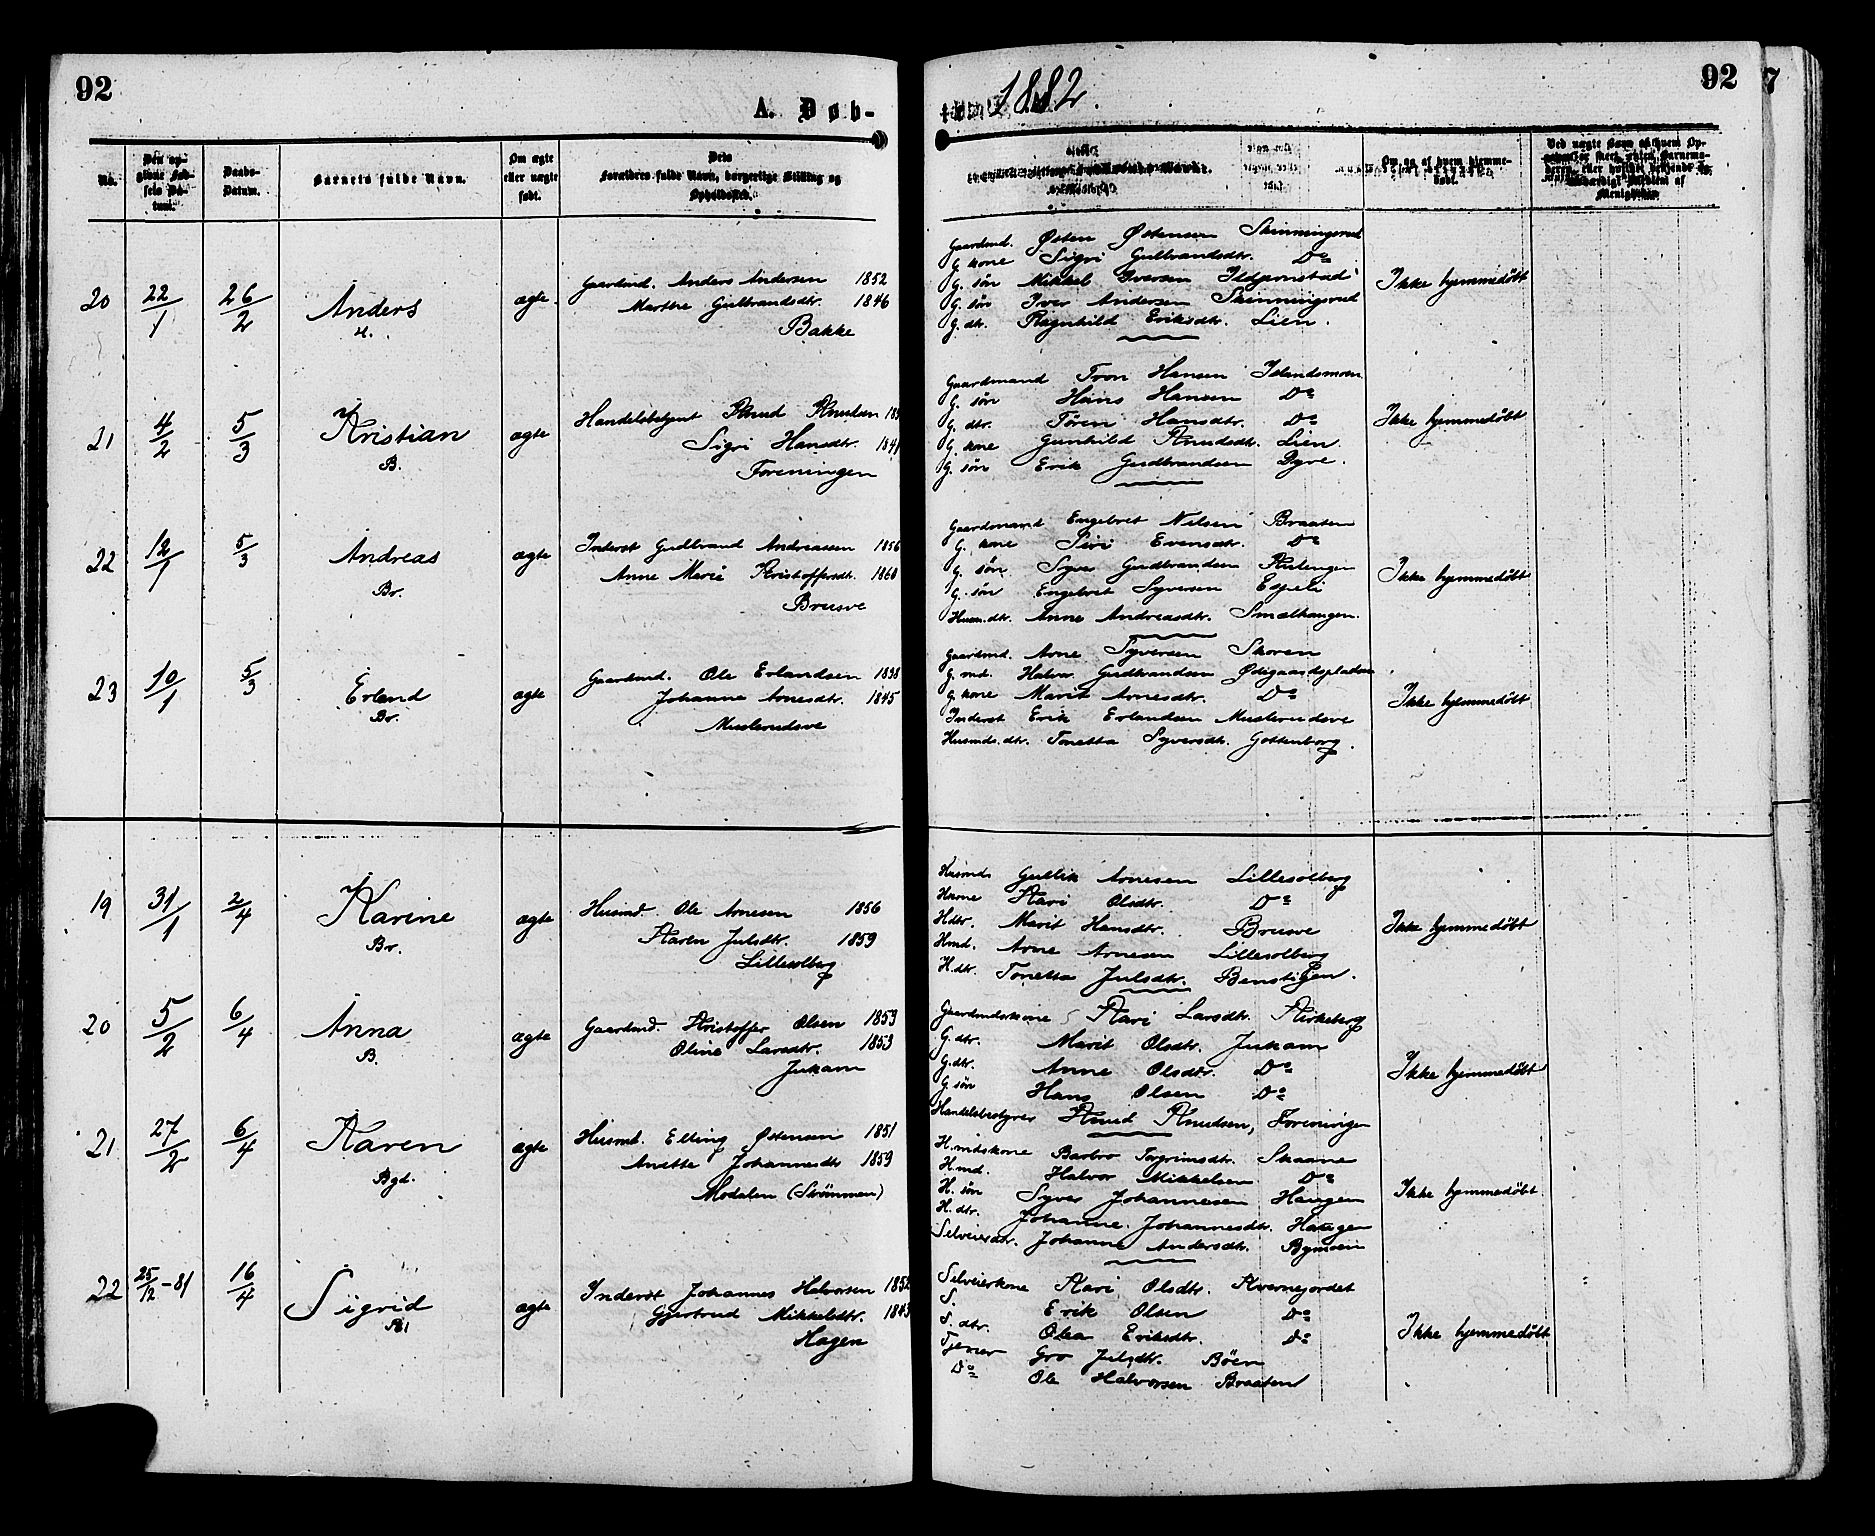 92
A. Døb-
1882.
92
7
No.
Den op-
givne Fød-
sels Da-
tum.
Daabs-
Datum.
Barnets fulde Navn.
Om ægte
eller uægte
født.
Forældres fulde Navn, borgerlige Stilling og
Opholdssted.
20 22/1 26/2 Anders ægte
H.
Gaardmd. Anders Andersen 1852
Marthe Gulbrandsdtr. 1846
Bakke
Gaardmd. Østen Østensen Skinningsrud
G. kone Sigri Gulbrandsdtr. Do
G. søn Mikkel Iversen Ildjernstad
G. søn Iver Andersen Skinningsrud
G. dtr. Ragnhild Eriksdtr. Lien.
Ikke hjemmedøbt
21 4/2 5/3 Kristian ægte
B.
Handelsbetjent Knud Knudsen
Sigri Hansdtr. 1841
Foreningen
Gaardmand Tron Hansen Islandsmoen
G. søn Hans Hansen Do
G. dtr. Tören Hansdtr. Do
G. kone Gunhild Knudsdtr. Lien
G. søn Erik Gudbrandsen Dyve.
Ikke hjemmedøbt
22 12/1 5/3 Andreas ægte
Br.
Inderst Gudbrand Andreassen 1856
Anne Marie Kristoffersdt. 1860
Brusve
Gaardmand Engebret Nilsen Braaten
G. kone Siri Evensdtr. Do
G. søn Syver Gudbrandsen
G. søn Engebret Syversen Espeli
Husm. dtr. Anne Andreasdtr. Smælhaugen.
Ikke hjemmedøbt
23 10/1 5/3 Erland ægte
Br.
Gaardmd. Ole Erlandsen 1838
Johanne Arnesdtr. 1845
Muslerudsve
Gaardmd. Arne Syversen Skoren
G. md. Halvor Gudbrandsen Ødegaardspladsen
G. kone Marit Arnesdtr. Do
Inderst Erik Erlandsen Muslerudsve
Husmds. dtr. Tonetta Syversdt. Gottenborg.
Ikke hjemmedøbt
19 31/1 2/4 Karine ægte
Br.
Husmd. Ole Arnesen 1856
Karen Julsdtr. 1859
Lillesolberg
Husmd. Gullik Arnesen Lillesolberg
Hkone Kari Olsdtr. Do
Hdtr. Marit Hansdtr. Brusve
Hmd. Arne Arnesen Lillesolberg
H. dtr. Tonetta Julsdtr. Benstigen.
Ikke hjemmedøbt
20 5/2 6/4 Anna ægte
B.
Gaardmd. Kristoffer Olsen 1853
Oline Larsdtr. 1853
Jukam
Gaardmdskone Kari Larsdt. Kirkeberg
G. dtr. Marit Olsdtr. Jukam
G. dtr. Anne Olsdtr. Do
G. søn Hans Olsen Do
Handelsbestyrer Knud Knudsen, Foreningen
Ikke hjemmedøbt
21 27/2 6/4 Karen ægte
Bgd.
Husmd. Elling Østensen 1851
Anette Johannesdt 1859
Modalen (Strømmen)
H.mdskone Barbro Torgrimsdtr. Skaane
H.md. Halvor Mikkelsen Do
H. søn Syver Johannesen Haugen
H. dtr. Johanne Johannesdtr. Haugen
Selveierdtr. Johanne Andersdtr. Bymoen
Ikke hjemmedøbt.
22 25/12-81 16/4 Sigrid ægte
Inderst Johannes Halvorsen 1852
Gjertrud Mikkelsdtr. 1843
Hagen
Selveierkone Kari Olsdtr. Kvernejordet
S. Erik Olsen Do
S. dtr. Olea Eriksdtr. Do
Tjener Gro Julsdtr. Böen
Do Ole Halvorsen Braaten
Ikke hjemmedøbt